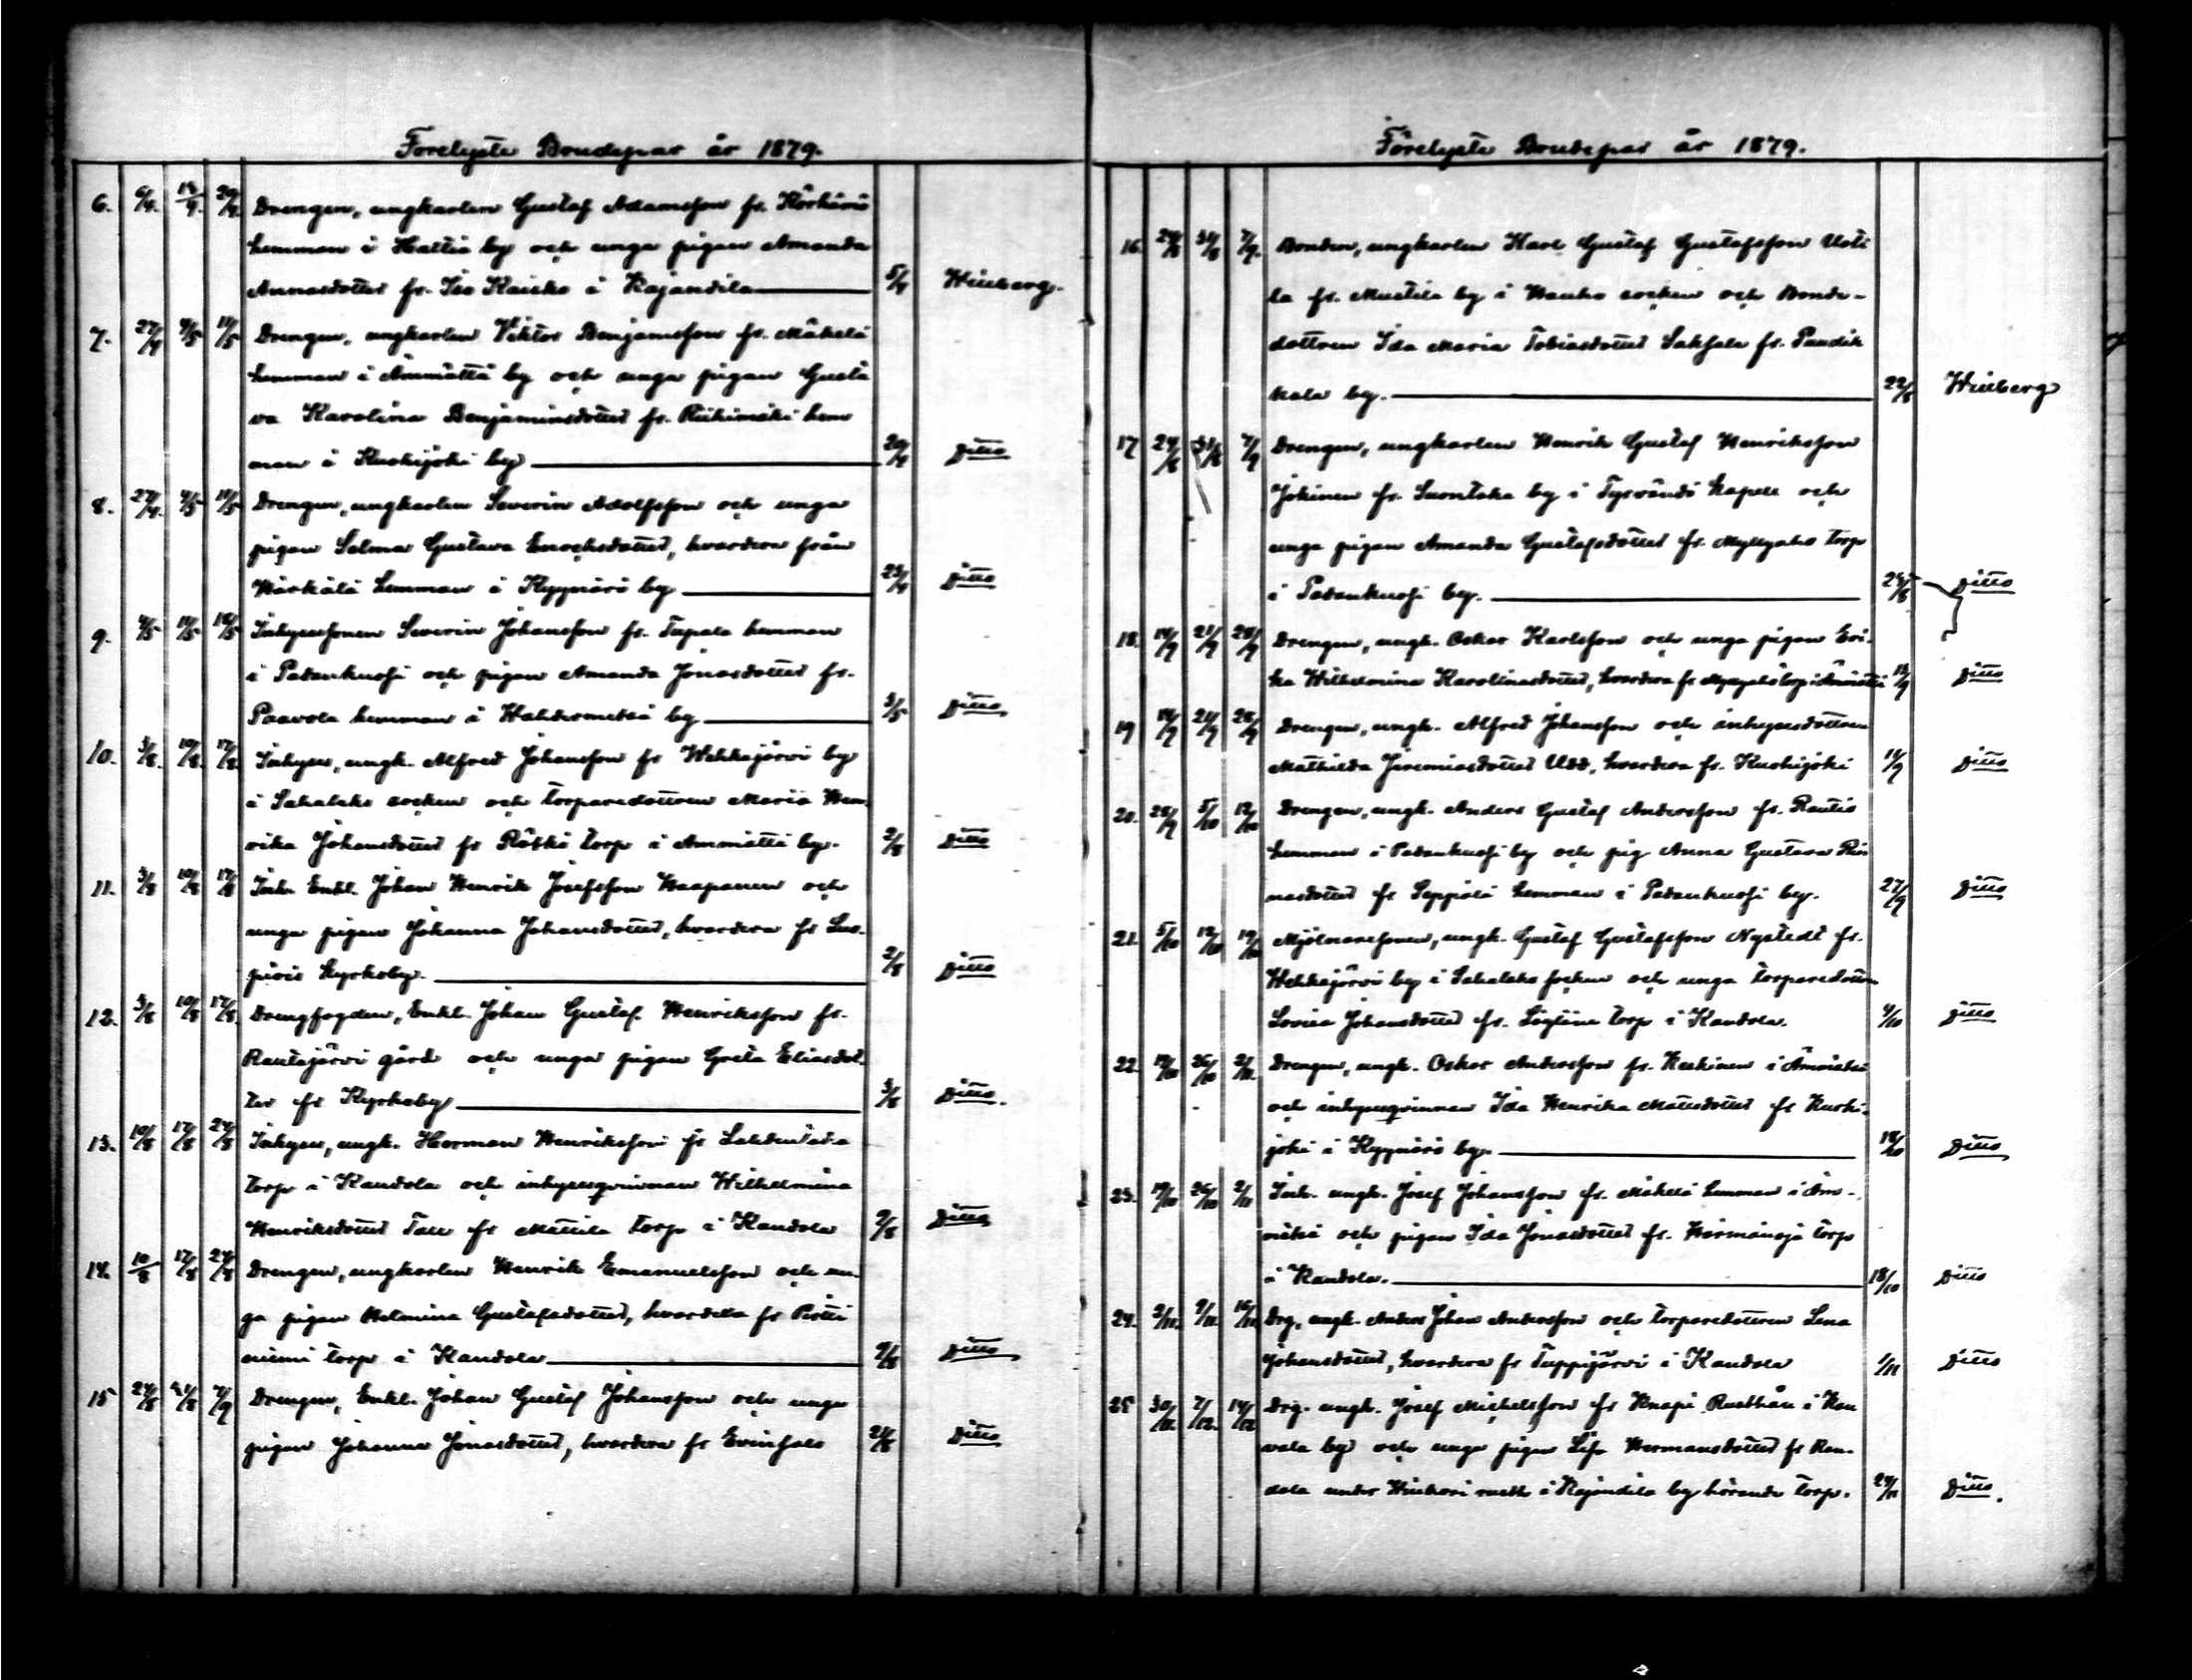 Förelyste Brudepar år 1879.
6. 6/4. 14/9. 20/4. Drengen, ungkarlen Gustaf Adamsson fr.
hemman i Hattia by och unga pigan Amanda
Annasdotter fr. Iso Kaisko i Kajandila 5/4 Hiuberg.
7. 27/4 4/5 11/5 Drengen, ungkarlen Viktor Benjamsson fr. Mäkelä
hemman i Ämmättä by och unga pigan Gusta
va Karolina Benjaminsdotter fr. Riihimäki hem
man i Kuohijoki by 20/4 Ditto
8. 27/4. 4/5 11/5 Drengen, ungkarlen Severin Adolfsson och unga
pigan Selma Gustava Enochsdotter, hvardera från
hemman i Kyynärö by 23/4 Ditto
9. 4/5 11/5 18/5 Inhysessonen Severin Johansson fr. Tupala hemman
i Padankuosi och pigan Amanda Jonasdotter fr.
Paavola hemman i by 3/5 Ditto
10. 3/8. 10/8. 17/8. Inhyses, ungk. Alfred Johansson fr Wehkajärvi by
i Sahalaks socken och torparedottren Maria Hen
rika Johansdotter fr torp i Ämmättä by. 2/8 Ditto
11. 3/8 10/8 17/8 Inh. Enkl. Johan Henrik Josefsson Haapanen och
unga pigan Johanna Johansdotter, hvardera fr Luo-
piois Kyrkoby. 2/8 Ditto
12. 3/8 10/8 17/8. Drengfogden, Enkl. Johan Gustaf Henriksson fr.
Rautajärvi gård och unga pigan Greta Eliasdot
ter fr Kyrkoby 3/8 Ditto.
13. 10/8 17/8 24/8 Inhyses, ungk. Herman Henriksson fr
torp i Kandola och inhysesqvinnan Wilhelmina
Henriksdotter fr Mattila torp i Kandola 9/8 Ditto
14. 10/8 17/8 24/8 Drengen, ungkarlen Henrik Emanuelsson och un-
ga pigan Helmina Gustafsdotter, hvardera fr Pirtti
niemi torp i Kandola 9/8 Ditto
15 24/8 31/8 7/9 Drengen, Enkl. Johan Gustaf Johansson och unga
pigan Johanna Jonasdotter, hvardera fr Evinsalo Ditto
Förelyste Brudepar år 1879.
16. 24/8 31/8 7/9. Bonden, ungkarlen Karl Gustaf Gustafsson Uoti
la fr. Mustila by i Hauho socken och Bonde-
dottren Ida Maria Tobiasdotter Saksala fr. Puudik
kala by. 22/8 Hiuberg
17 24/8 31/8 7/9 Drengen, ungkarlen Henrik Gustaf Henriksson
Jokinen fr. Suontaka by i Tyrväntö kapell och
unga pigan Amanda Gustafsdotter fr. Myllyaho torp
i Padankuosi by. Ditto
18. 14/9 21/9 28/9 Drengen, ungk. Oskar Karlsson och unga pigan Eri-
ka Wilhelmina Karolinasdotter, hvardera fr torp i Ämmättä 13/9 Ditto
19 14/9 21/9 28/9 Drengen, ungk. Alfred Johansson och inhysesdottren
Mathilda Jeremiasdotter Udd, hvardera fr. Kuohijoki Ditto
20. 28/9 5/10 12/10 Drengen, ungk. Anders Gustaf Andersson fr. Rautio
hemman i Padankuosi by och pig Anna Gustava
nasdotter fr Seppälä hemman i Padankuosi by. 27/9 Ditto
21. 5/10 12/10 19/10 Mjölnaresonen, ungk. Gustaf Gustafsson Nystedt fr.
Wehkajärvi by i Sahalaks socken och unga torparedottren
Lovisa Johansdotter fr. torp i Kandola. 4/10 Ditto
22. 19/10 26/10 2/11. Drengen, ungk. Oskar Andersson fr. Heikinen i Ämmättä
och inhysesqvinnan Ida Henrika Mattsdotter fr Kuohi-
joki i Kyynärö by. 18/10 Ditto
23. 19/10 26/10 2/11 Inh. ungk. Josef Johansson fr. Mäkelä hemman i Äm-
mättä och pigan Ida Jonasdotter fr. torp
i Kandola. 18/10 Ditto
24. 2/11. 9/11. 16/11. Drg, ungk. Anders Johan Andersson och torparedottren Lena
Johansdotter, hvardera fr Tuppijärvi i Kandola 1/11 Ditto
25 30/11. 7/12. 14/12 Drg. ungk. Josef Michelsson fr Knapi Rusthåll i
vala by och unga pigan Lisa Hermansdotter fr Kan-
dola under rusth i Kajandila by hörande torp. 29/11 Ditto.